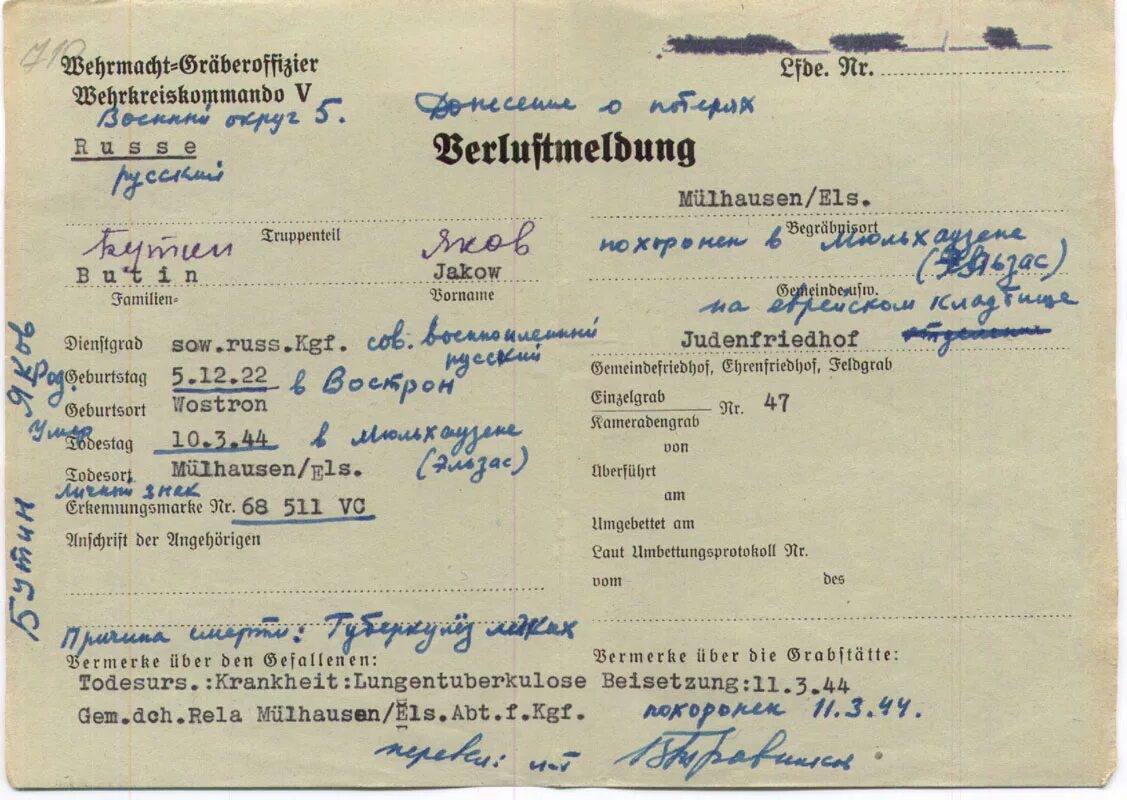 Wehrmacht=Gräberoffizier
Wehrkreiskommando V
Военный округ 5.
Russe
русский
Lfde. Nr.
Донесение о потерях
Verlustmeldung
Truppenteil
Бутин Яков
Butin Jakow
Familien= Vorname
Dienstgrad sow.russ.Kgf. сов. военнопленный
русский
Род. Geburtstag 5.12.22 в Вострон
Geburtsort Wostron
Умер
Todestag 10.3.44 в Мюльхаузене
(Эльзас)
Todesort Mülhausen/Els.
Личный знак
Erkennungsmarke Nr. 68 511 VC
Anschrift der Angehörigen
Бутин Яков
Причина смерти: Туберкулёз легких
Vermerke über den Gefallenen:
Todesurs.:Krankheit:Lungentuberkulose
Gem.dch.Rela Mülhausen/Els.Abt.f.Kgf.
Mülhausen/Els.
Begräbnisort
похоронен в Мюльхаузене
(Эльзас)
Gemeinde usw.
на еврейском кладбище
Judenfriedhof
Gemeindefriedhof, Ehrenfriedhof, Feldgrab
Einzelgrab
Nr. 47
Kameradengrab
von
Überführt
am
Umgebettet am
Laut Umbettungsprotokoll Nr.
vom des
Vermerke über die Grabstätte:
Beisetzung:11.3.44
похоронен 11.3.44.
перевел: